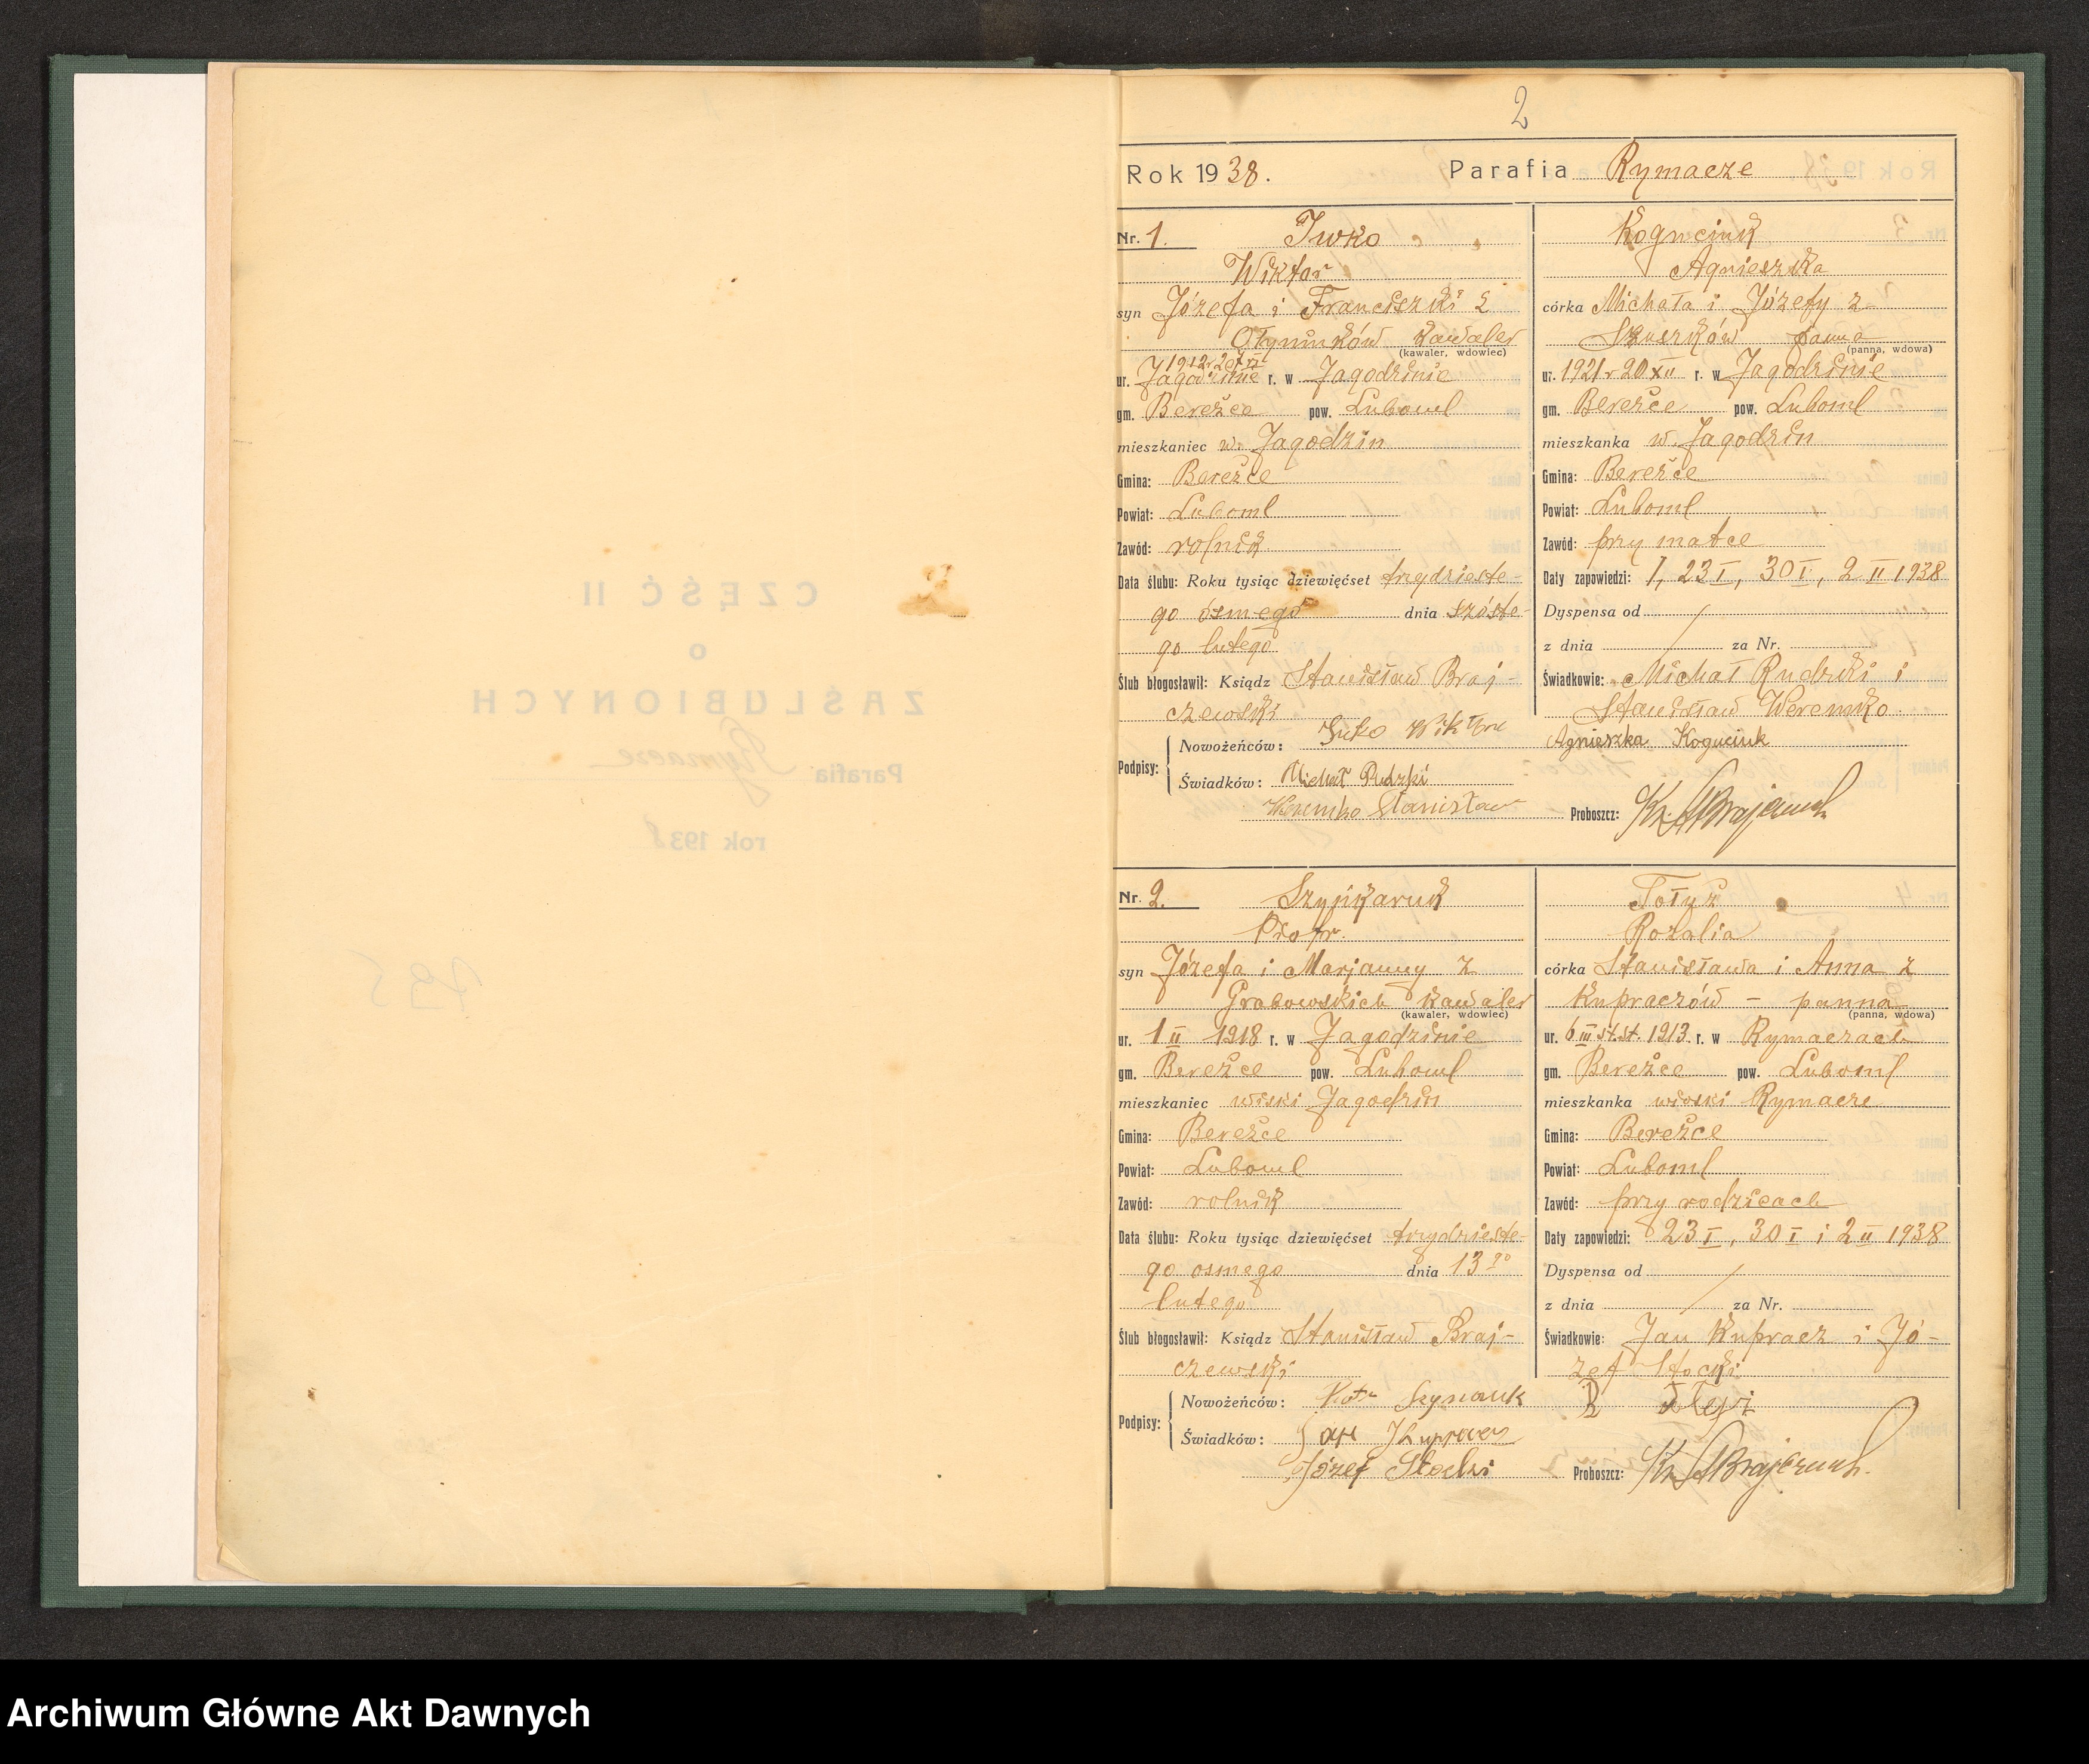 2
Rok 1938. Parafia Rymacze
Nr. 1. Iwko
Wiktor
syn Józefa i Franciszki z
Ołyników kawaler
(kawaler, wdowiec)
1912 r.
ur. Jagodzinie r. w Jagodzinie
gm. Bereźce pow. Luboml
mieszkaniec w. Jagodzin
Gmina: Bereźce
Powiat: Luboml
Zawód: rolnik
Data ślubu: Roku tysiąc dziewięćset trzydzieste-
go ósmego dnia szóste-
go lutego
Ślub błogosławił: Ksiądz Stanisław Braj-
czewski
Koguciuk
Agnieszka
córka Michała i Józefy z
panna
(panna, wdowa)
ur. 1921 r 20 XII r. w Jagodzinie
gm. Bereźce pow. Luboml
mieszkanka w. Jagodzin
Gmina: Bereźce
Powiat: Luboml
Zawód: przy matce
Daty zapowiedzi: 23 I, 30 I, 2 II 1938
Dyspensa od /
z dnia / za Nr.
Świadkowie: Michał Rudzki i
Stanisław Weremko
Podpisy:
Nowożeńców: Iwko Wiktor Agnieszka Koguciuk
Świadków: Michał Rudzki
Weremko Stanisław Proboszcz: Ks. St Brajczewski
Nr. 2. Szynkaruk
Piotr
syn Józefa i Marjanny z
Grabowskich kawaler
(kawaler, wdowiec)
ur. 1 II 1918 r. w Jagodzinie
gm. Bereźce pow. Luboml
mieszkaniec wioski Jagodzin
Gmina: Bereźce
Powiat: Luboml
Zawód: rolnik
Data ślubu: Roku tysiąc dziewięćset trzydzieste-
go osmego dnia 13 go
lutego
Ślub błogosławił: Ksiądz Stanisław Braj-
czewski
Tołyż
Rozalia
córka Stanisława i Anna z
Kupraczów - panna
(panna, wdowa)
ur. 6 III st. st. 1913 r. w Rymaczach
gm. Bereźce pow. Luboml
mieszkanka wioski Rymacze
Gmina: Bereźce
Powiat: Luboml
Zawód: przy rodzicach
Daty zapowiedzi: 23 I, 30 I i 2 II 1938
Dyspensa od /
z dnia / za Nr.
Świadkowie: Jan Kupracz i Jó-
zef Stocki
Podpisy:
Nowożeńców: R
Świadków: Jan Kupracz
Józef Stocki Proboszcz: Ks. St Brajczewski
CZĘŚĆ II
O
ZAŚLUBIONYCH
Parafia Rymacze
rok 1938
Archiwum Główne Akt Dawnych